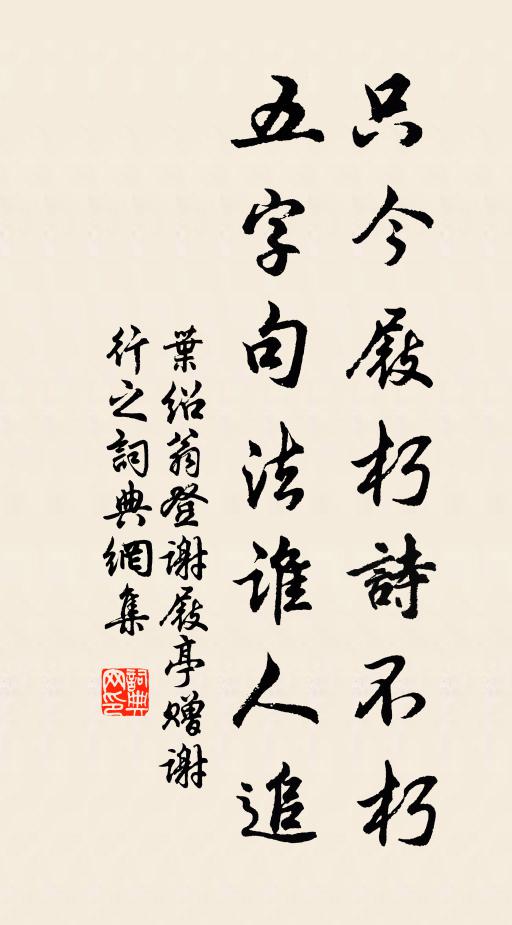 只今屐朽詩不朽
五字句法誰人追
葉紹翁登謝屐亭贈謝
行之詞典網集
詞典网印